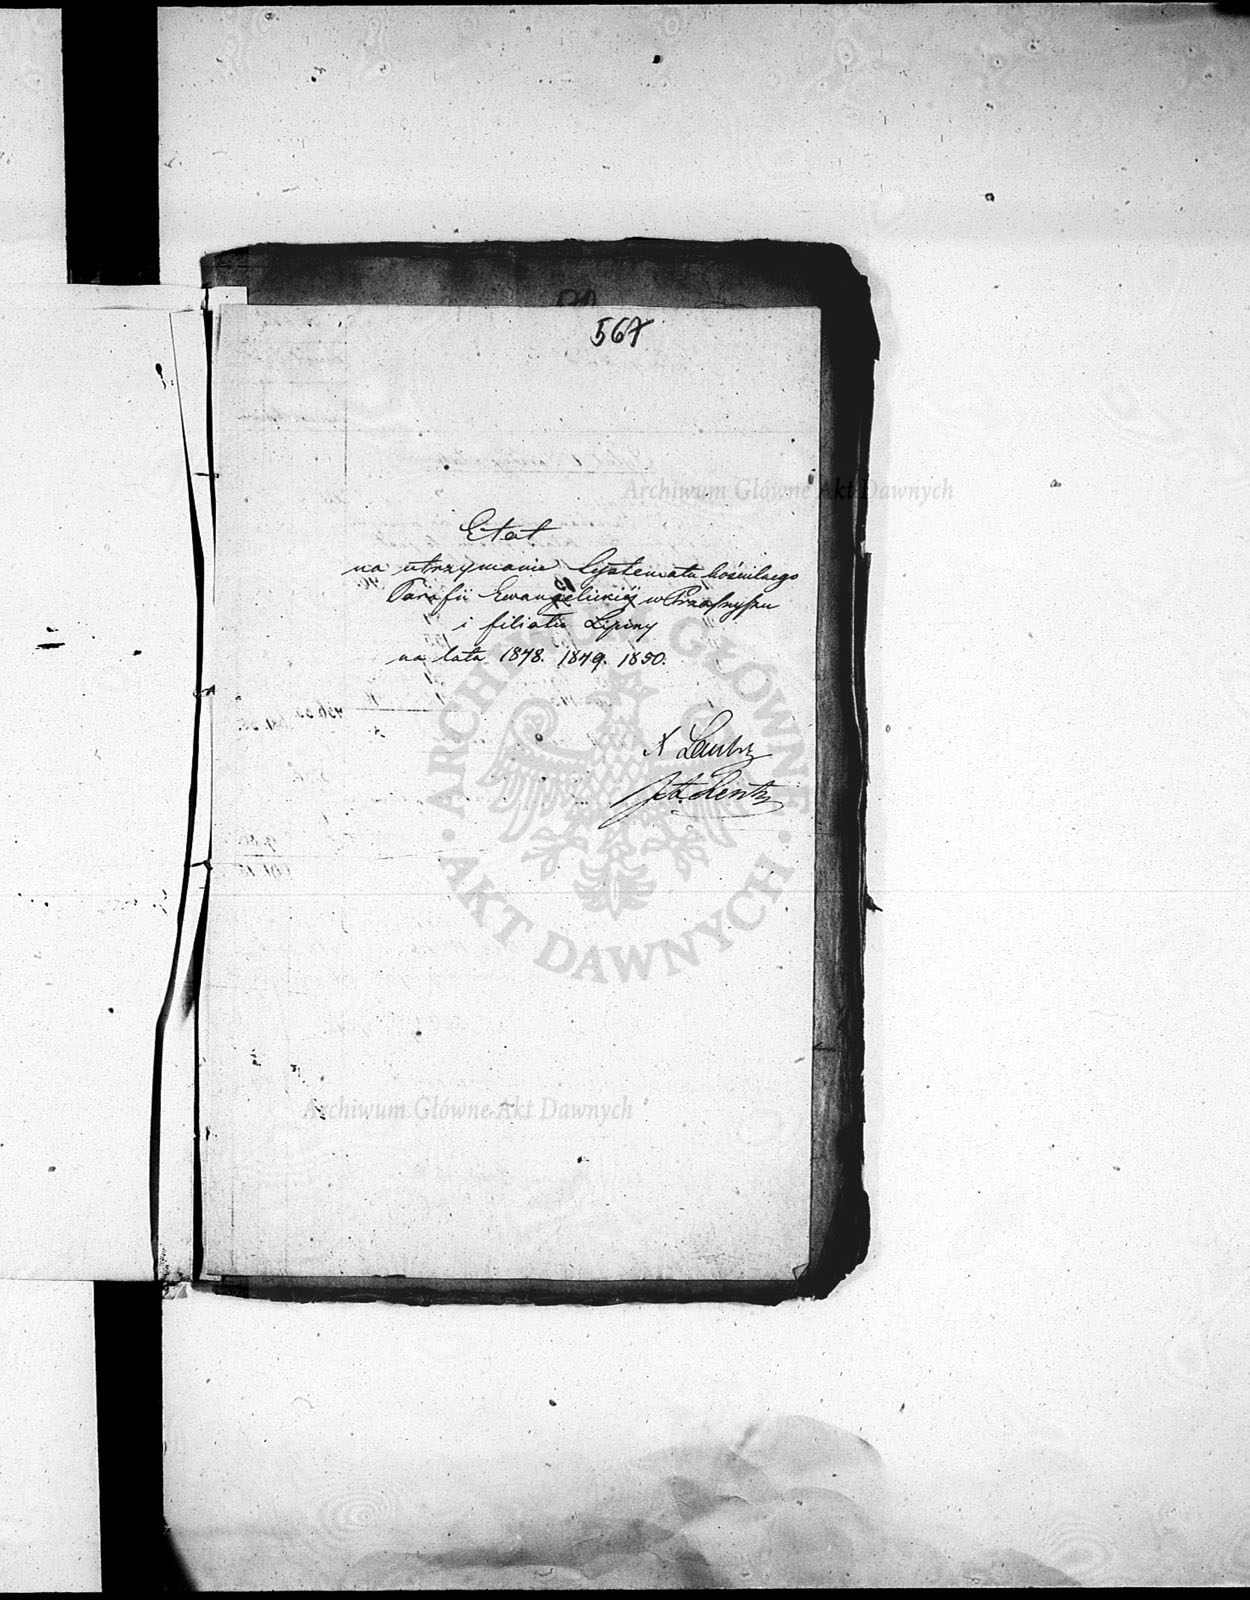 567
Archiwum Główne Akt Dawnych
Etat
na utrzymanie Systematu kościelnego
Parafii Ewangelickiéj w Przasnyszu
i filiału Lipiny
na lata 1848. 1849. 1850.
ARCHIWUM GŁÓWNE
· AKT DAWNYCH ·
Archiwum Główne Akt Dawnych